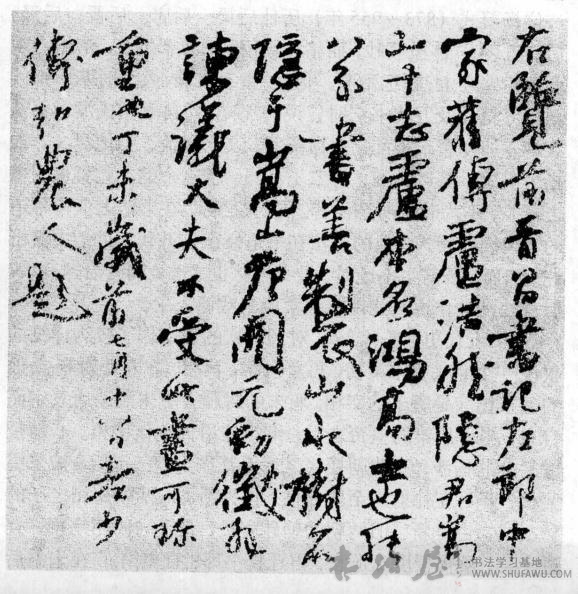 右覽前晉昌書記左郎中
家舊傳盧浩然隱君嵩
山十志盧本名鴻高士也能
八分書善製山水樹石
隱于嵩山唐開元初徵拜
諫議大夫不受此畫可珍
重也丁未歲前七月十八日老少
傅弘農人題
书法屋
书法学习基地
WWW.SHUFAWU.COM